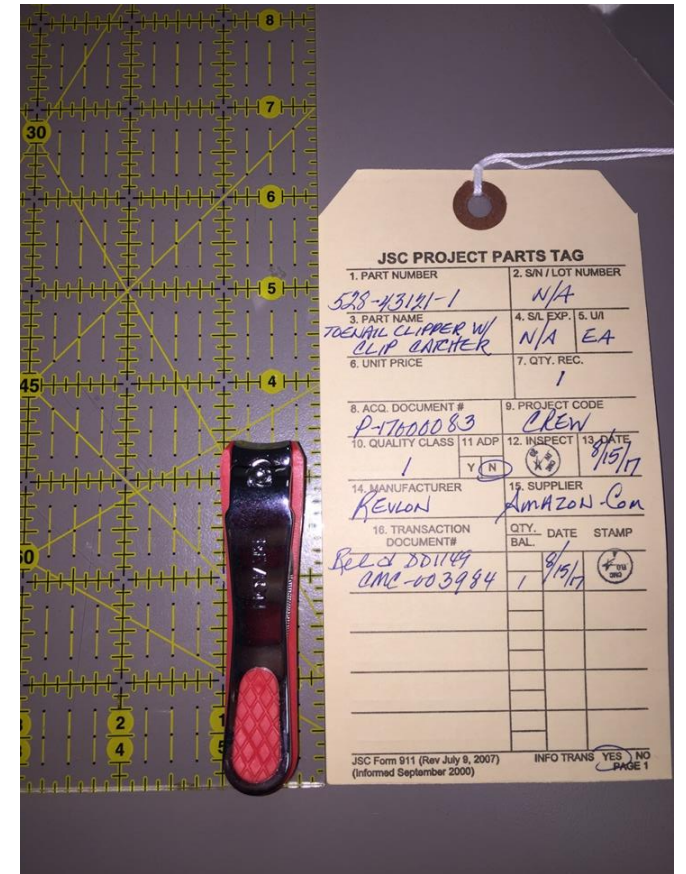 8
7
30
6
5
45
4
2
4
REVLON
JSC PROJECT PARTS TAG
1. PART NUMBER
528-43121-1
2. S/N / LOT NUMBER
N/A
3. PART NAME
TOENAIL CLIPPER W/
CLIP CATCHER
4. S/L EXP.
N/A
5. U/I
EA
6. UNIT PRICE
7. QTY. REC.
1
8. ACQ. DOCUMENT #
P-17000083
9. PROJECT CODE
CREW
10. QUALITY CLASS
1
11 ADP
Y N
12. INSPECT
13. DATE
8/15/17
14. MANUFACTURER
REVLON
15. SUPPLIER
AMAZON.COM
16. TRANSACTION
DOCUMENT#
QTY.
BAL.
DATE
STAMP
CMC-003984
1
8/15/17
JSC Form 911 (Rev July 9, 2007)
(Informed September 2000)
INFO TRANS YES NO
PAGE 1